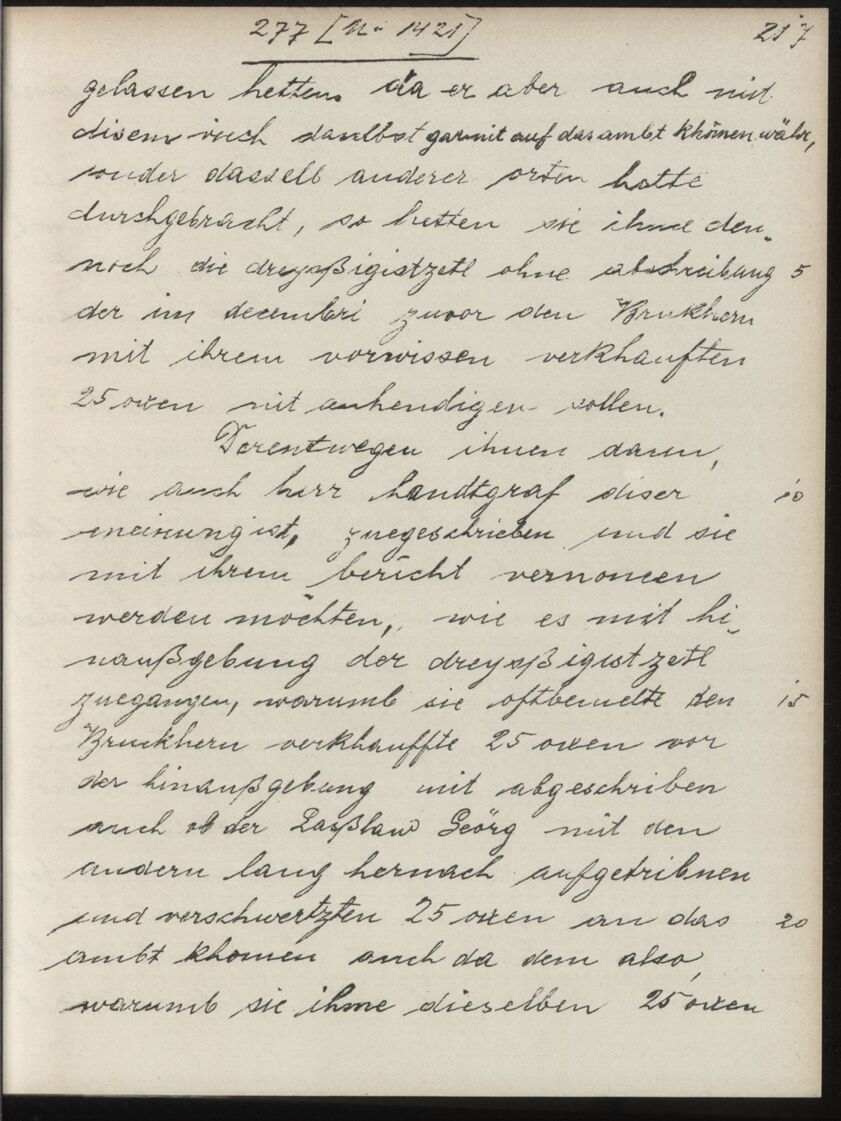 277 [N. 1421] 217
gelassen hetten, da er aber auch mit
disem vich daselbst gar nit auf das ambt khomen währ,
sonder dasselb anderer orten hatte
durchgebracht, so hetten sie ihme den„
noch die dreyßigistzetl ohne abschreibung 5
der im decembri zuvor den Brukhern
mit ihrem vorwissen verkhauften
25 oxen nit anhendigen sollen.
Derentwegen ihnen dann,
wie auch herr handtgraf diser 10
meinung ist, zuegeschrieben und sie
mit ihrem bericht vernomen
werden möchten, wie es mit hi„
naußgebung der dreyßigistzetl
zuegangen, warumb sie oftbemelte den 15
Bruckhern verkhauffte 25 oxen vor
der hinaußgebung nit abgeschriben
auch ob der Laßlaw Geörg mit den
andern lang hernach aufgetribnen
und verschwertzten 25 oxen an das 20
ambt khomen auch da dem also,
warumb sie ihme dieselben 25 oxen